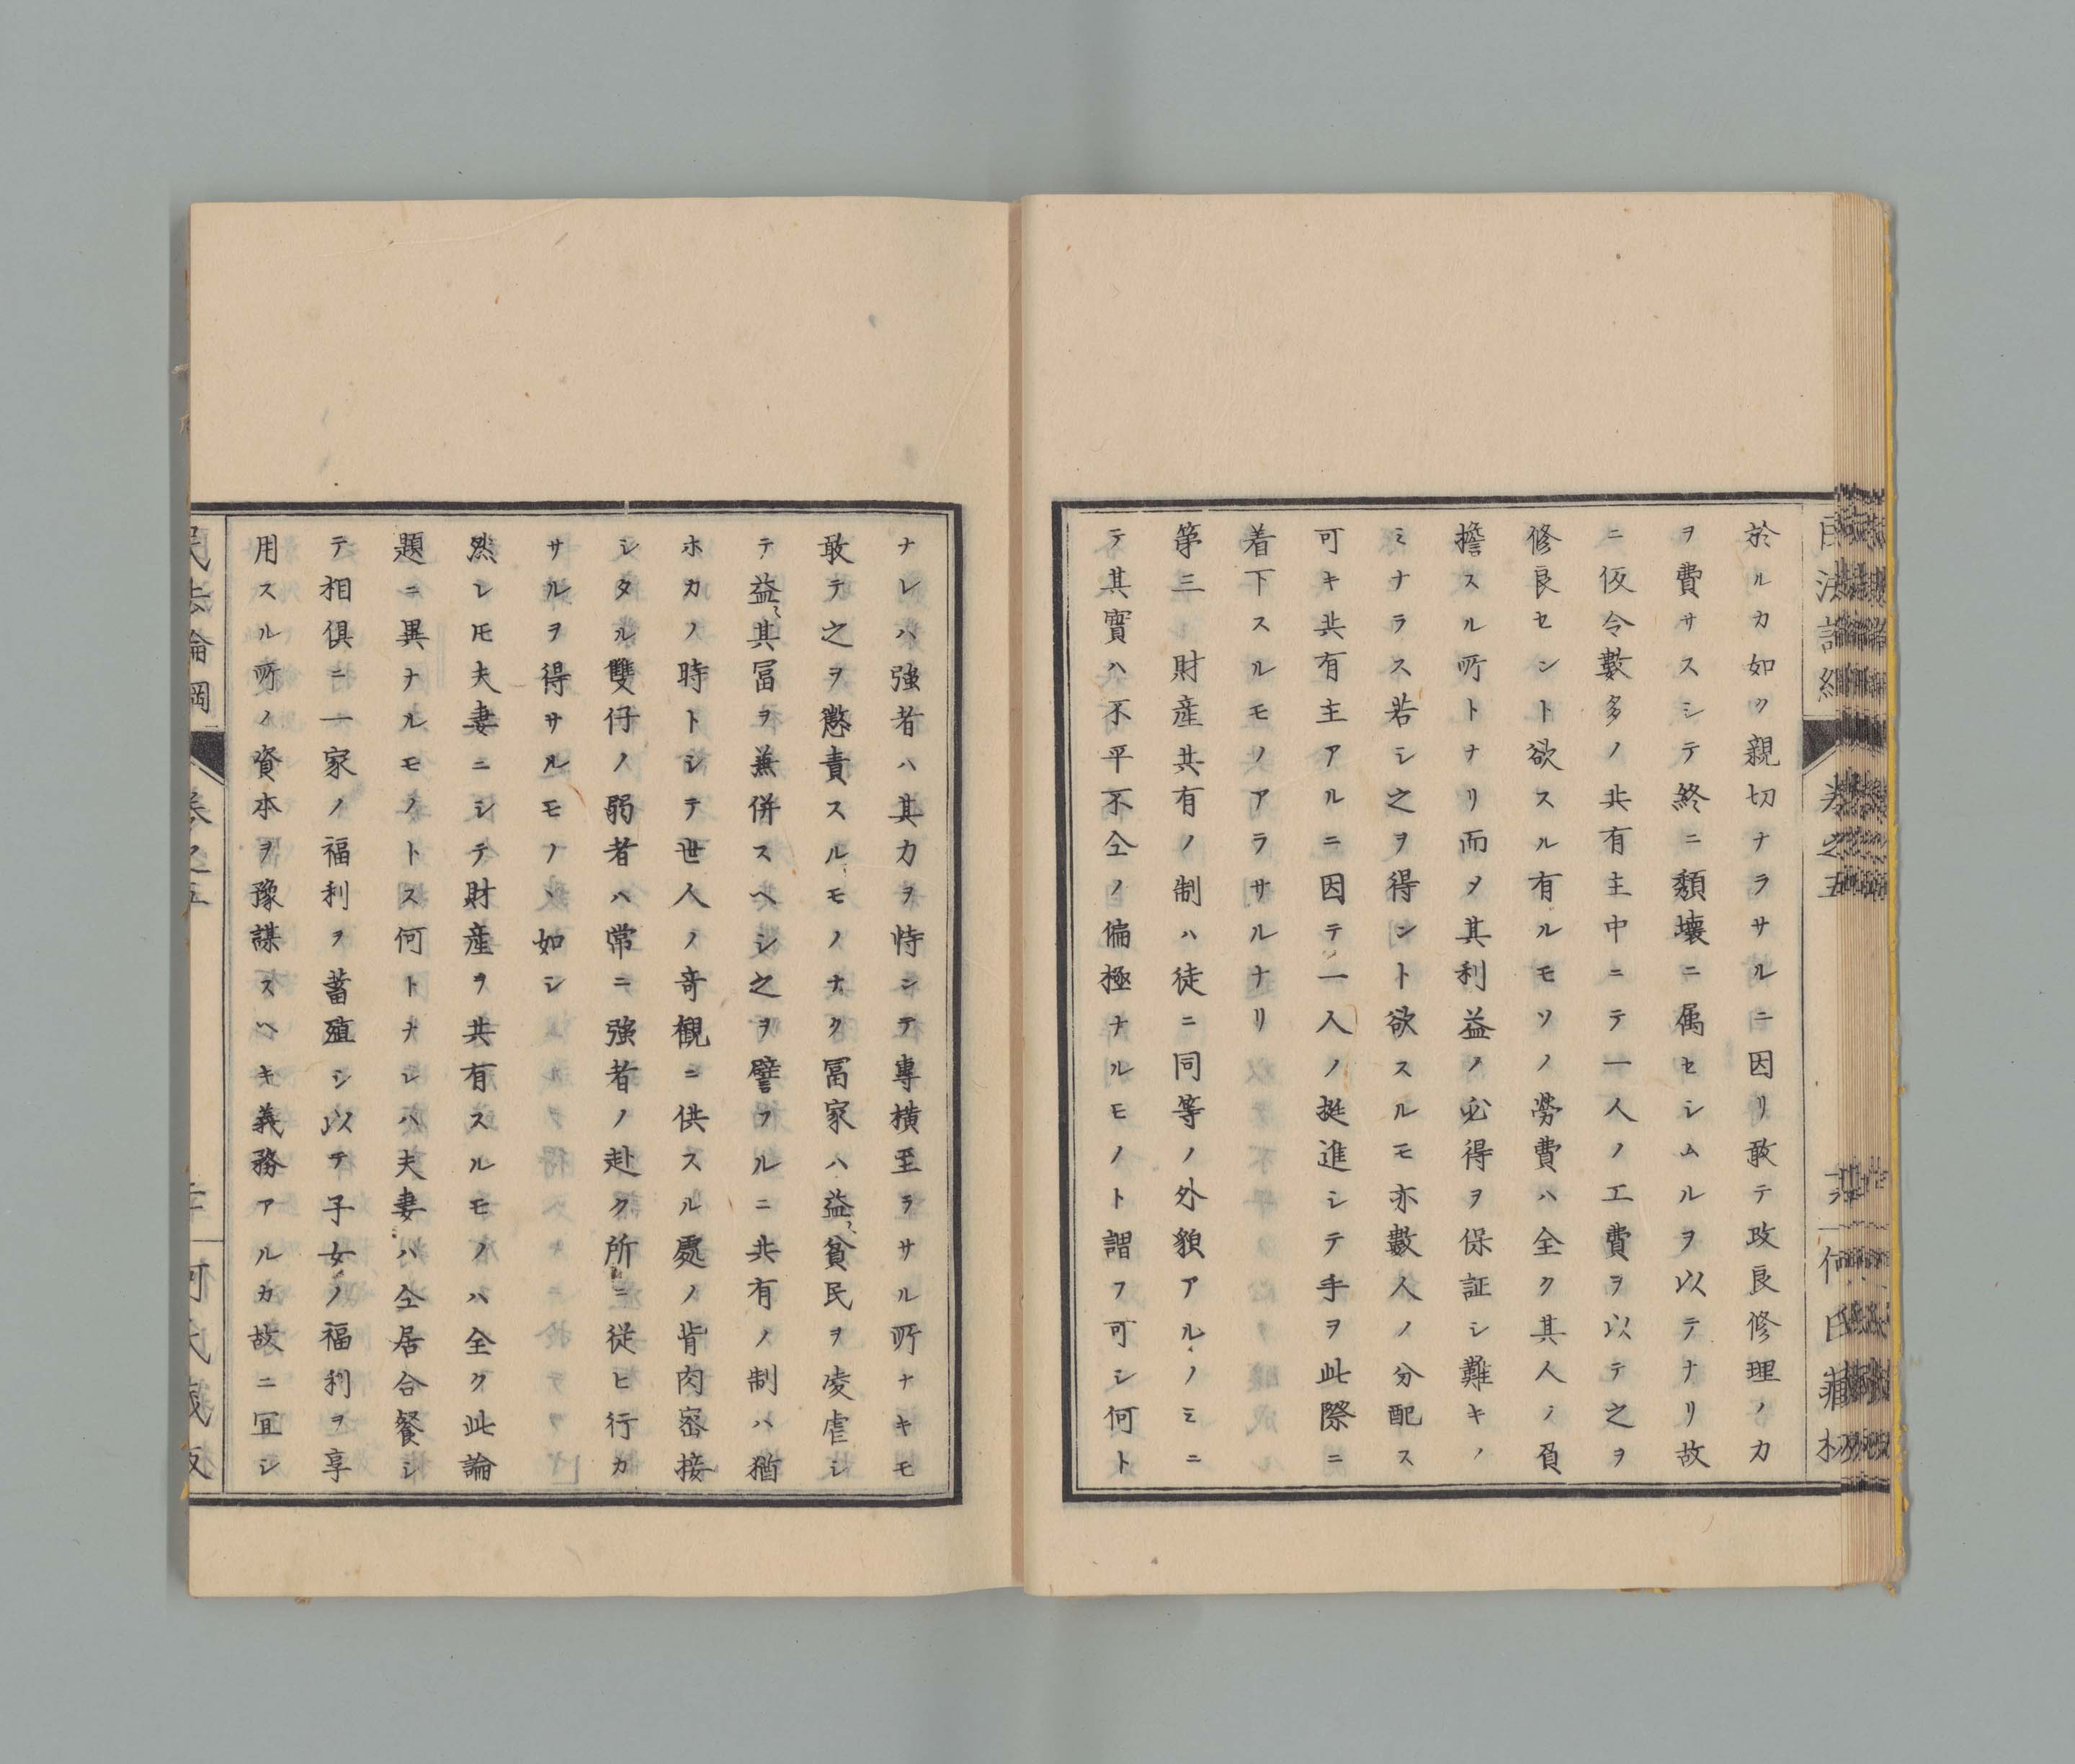 於ルカ如ク親切ナラサルニ因リ敢テ改良修理ノカ
ヲ費サスシテ終ニ頽壊ニ属セシムルヲ以テナリ故
ニ仮令數多ノ共有主中ニテ一人ノ工費ヲ以テ之ヲ
修良セント欲スル有ルモソノ勞費ハ全ク其人ノ負
擔スル所トナリ而〆其利益ノ必得ヲ保証シ難キノ
ミナラス若シ之ヲ得ント欲スルモ亦數人ノ分配ス
可キ共有主アルニ因テ一人ノ挺進シテ手ヲ此際ニ
着下スルモノアラサルナリ
第三財産共有ノ制ハ徒ニ同等ノ外貌アルノミニ
テ其實ハ不平不仝ノ偏極ナルモノト謂フ可シ何ト
ナレハ強者ハ其力ヲ恃ンテ專横至ラサル所ナキモ
敢テ之ヲ懲責スルモノナク冨家ハ益〻貧民ヲ凌虐シ
テ益〻其冨ヲ兼併スヘシ之ヲ譬フルニ共有ノ制ハ猶
ホカノ時トシテ世人ノ竒觀ニ供スル處ノ背肉密接
シタル雙仔ノ弱者ハ常ニ強者ノ赴ク所ニ従ヒ行カ
サルヲ得サルモノヽ如シ
然レ𪜈夫妻ニシテ財産ヲ共有スルモノハ全ク此論
題ニ異ナルモノトス何トナレハ夫妻ハ仝居合餐シ
テ相倶ニ一家ノ福利ヲ蓄殖シ以テ子女ノ福利ヲ享
用スル所ノ資本ヲ豫謀スヘキ義務アルカ故ニ宜シ
民法論綱
巻之五
何氏蔵板